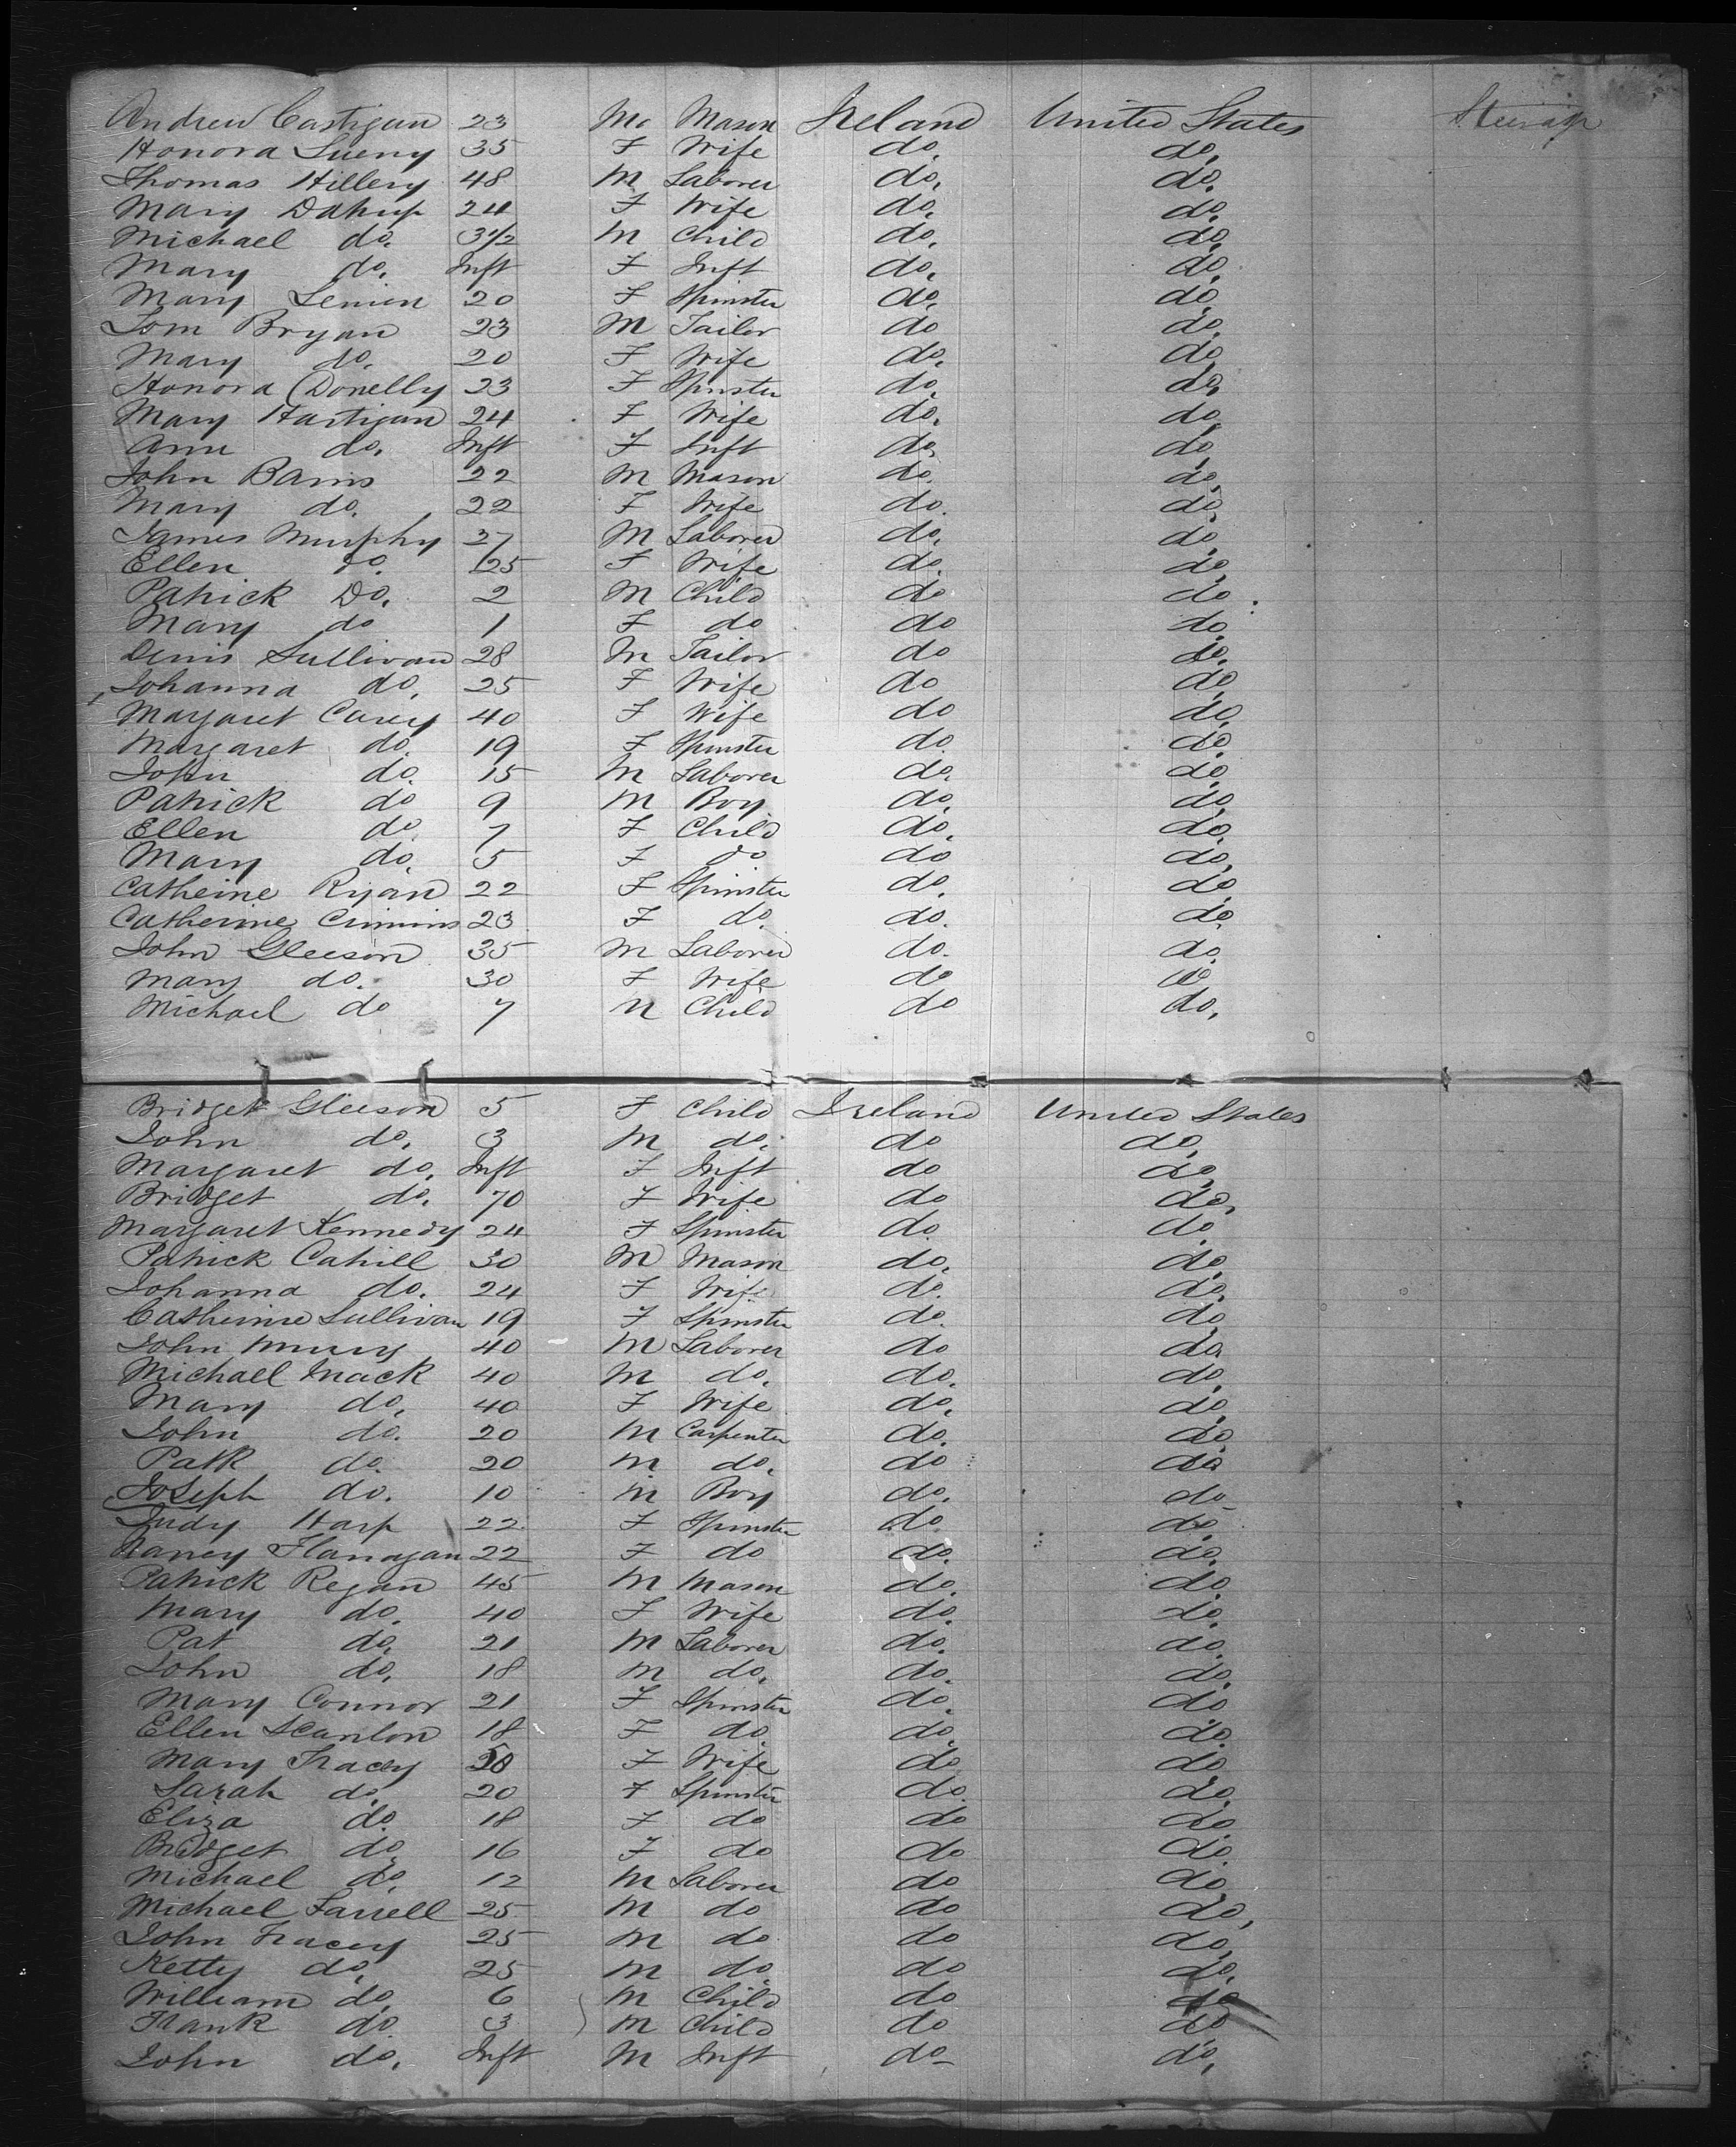 Andrew Castigan 23 M Mason Ireland United States Steerage
Honora Sueny 35 F Wife do. do.
Thomas Hillery 48 M Laborer do. do.
Mary 24 F Wife do. do.
Michael do. 3 1/2 M Child do. do.
Mary do. Inft F Inft do. do.
Mary Lenien 20 F Spinster do. do.
Tom Bryan 23 M Tailor do do.
Mary do. 20 F Wife do. do.
Honora Donelly 23 F Spinster do. do.
Mary Hartigan 24 F Wife do. do.
Ann do. Inft F Inft do. do.
John 22 M Mason do. do.
Mary do. 22 F Wife do. do.
James Murphy 27 M Laborer do. do.
Ellen do. 25 F Wife do. do.
Patrick Do. 2 M Child do do.
Mary do 1 F do do do.
Denis Sullivan 28 M Tailor do do.
Johanna do. 25 F Wife do do.
Margaret Carey 40 F Wife do do.
Margaret do. 19 F Spinster do. do.
John do. 15 M Laborer do. do.
Patrick do 9 M Boy do. do.
Ellen do. 7 F Child do. do.
Mary do. 5 F do do do.
Catheine Ryan 22 F Spinster do. do.
Catherine Crimins 23 F do. do. do.
John Gleeson 35 M Laborer do. do.
Mary do. 30 F Wife do do
Michael do 7 M Child do do.
Bridget Gleeson 5 F Child Ireland United States
John do. 3 M do. do do.
Margaret do. Inft F Inft do do.
Bridget do. 70 F Wife do do.
Margaret Kennedy 24 F Spinster do. do.
Patrick Cahill 30 M Mason do. do.
Johanna do. 24 F Wife do. do.
Catherine Sullivan 19 F Spinster do. do.
John 40 M Laborer do do.
Michael Mack 40 M do. do. do.
Mary do. 40 F Wife do. do.
John do. 20 M Carpenter do. do.
Patk do. 20 M do. do do
Joseph do. 10 M Boy do. do
Judy Harp 22 F Spinster do do.
Nancy Flanagan 22 F do do. do.
Patrick Regan 45 M Mason do. do.
Mary do. 40 F Wife do. do.
Pat do. 21 M Laborer do. do.
John do. 18 M do. do. do.
Mary Connor 21 F Spinster do. do
Ellen Scanlon 18 F do. do. do.
Mary Tracey 50 F Wife do do.
Sarah do. 20 F Spinster do. do.
Eliza do. 18 F do do do
Bridget do. 16 F do do do.
Michael do. 12 M Laborer do do.
Michael Farrell 25 M do do do,
John Tracey 25 M do do do.
Ketty do. 25 M do. do do.
William do. 6 M Child do do
Frank do. 3 M Child do do
John do. Inft M Inft do do.